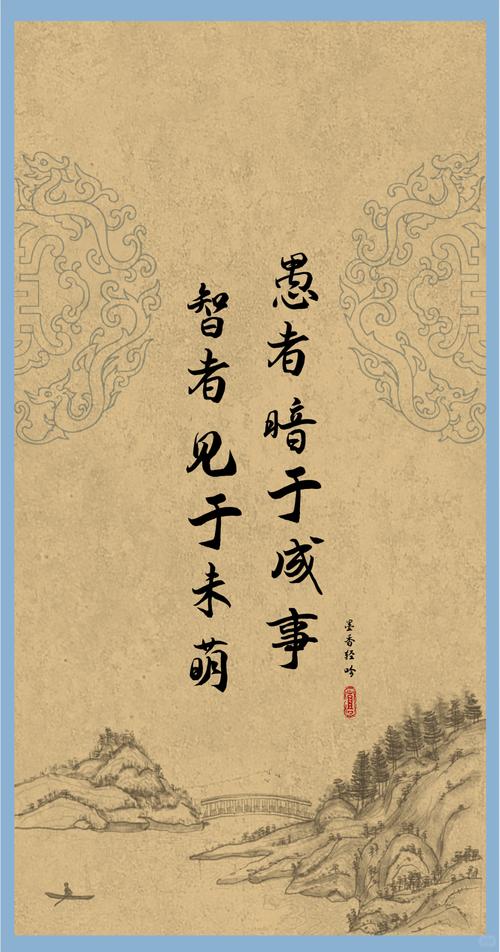 愚者暗于成事
智者见于未萌
墨香轻吟